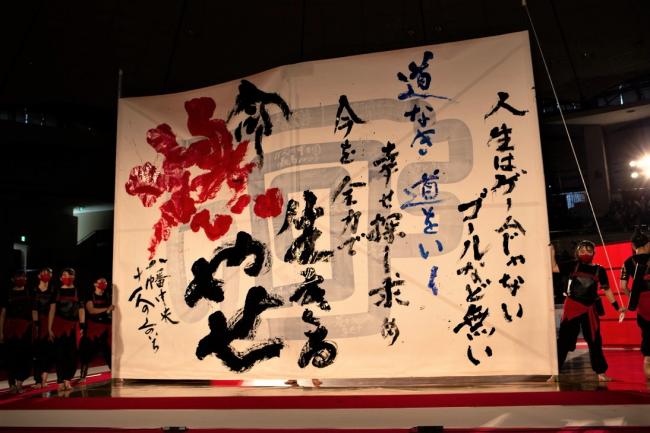 人生はゲームじゃない
ゴールなど無い
道なき道をいく
幸せ探し求め
今を全力で
生きる
命
やせ
八幡中央